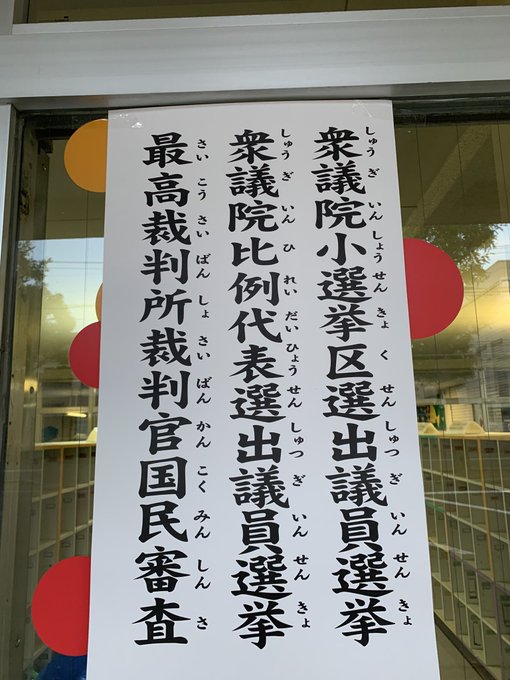 衆議院小選挙区選出議員選挙
しゅうぎいんしょうせんきょくせんしゅつぎいんせんきょ
衆議院比例代表選出議員選挙
しゅうぎいんひれいだいひょうせんしゅつぎいんせんきょ
最高裁判所裁判官国民審査
さいこうさいばんしょさいばんかんこくみんしんさ